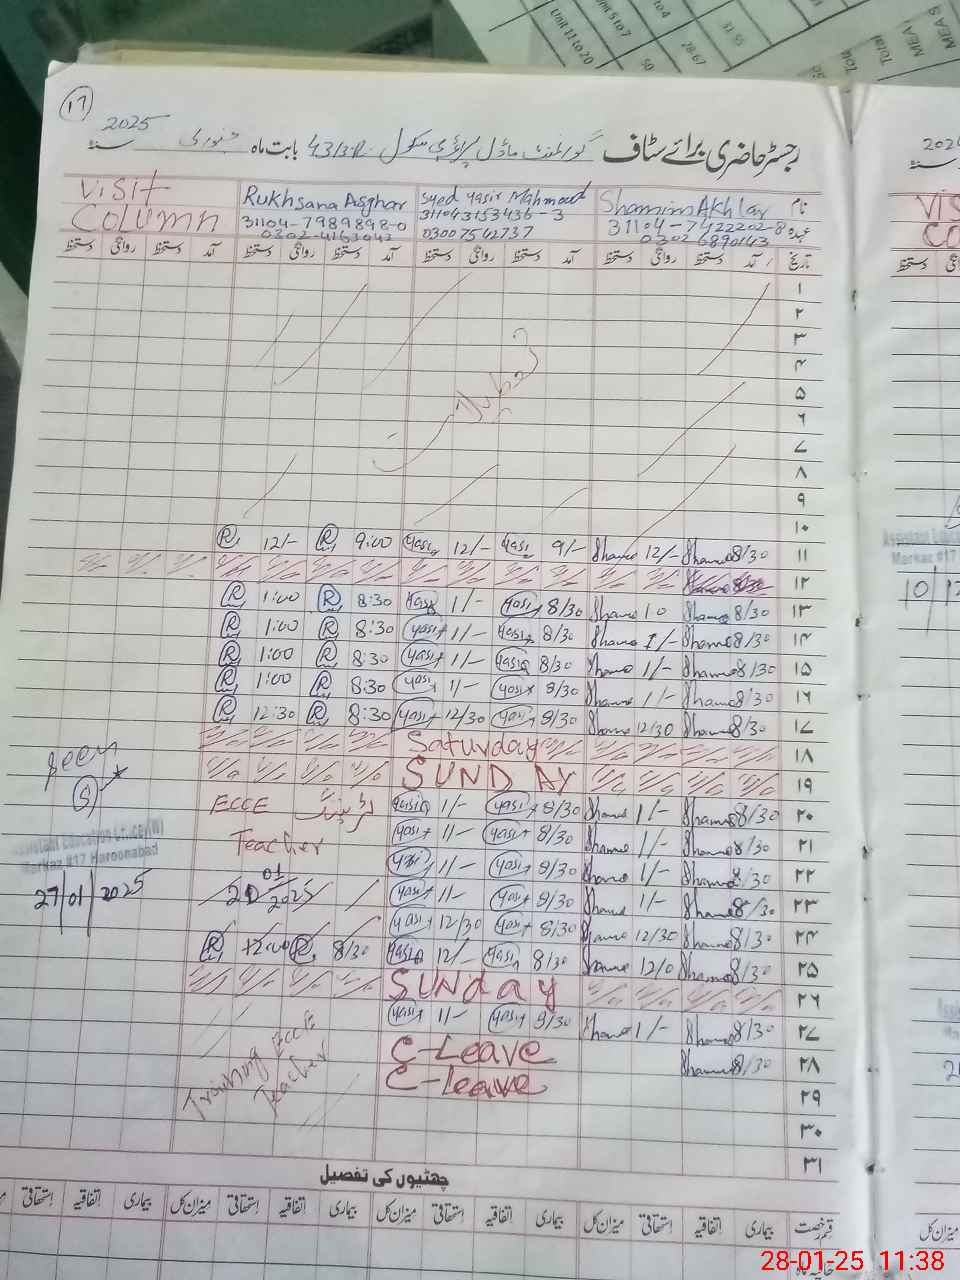 ۱۷
رجسٹر حاضری برائے سٹاف گورنمنٹ ماڈل پرائمری سکول 43/3R بابت ماہ جنوری 2025 سنہ
نام Shamim Akhtar Syed Yasir Mahmood Rukhsana Asghar VISIT
عہدہ 31104-7422202-8 311043153436-3 31104-7989898-0 COLUMN
0302 6890143 03007542737 0302-4163043
تاریخ آمد دستخط روانگی دستخط آمد دستخط روانگی دستخط آمد دستخط روانگی دستخط آمد دستخط روانگی دستخط
۱
۲
۳
۴
۵
۶
۷
۸
۹
۱۰
۱۱ 8/30 Shame 12/- Shame 9/- Yasir 12/- Yasir 9:00 R 12/- R
۱۲
۱۳ 8/30 Shame 10 Shame 8/30 Yasir 1/- Yasir 8:30 R 1:00 R
۱۴ 8/30 Shame 1/- Shame 8/30 Yasir 1/- Yasir 8:30 R 1:00 R
۱۵ 8/30 Shame 1/- Shame 8/30 Yasir 1/- Yasir 8:30 R 1:00 R
۱۶ 8/30 Shame 1/- Shame 8/30 Yasir 1/- Yasir 8:30 R 1:00 R
۱۷ 8/30 Shame 12/30 Shame 8/30 Yasir 12/30 Yasir 8:30 R 12:30 R
۱۸ Saturday
۱۹ SUNDAY
۲۰ 8/30 Shame 1/- Shame 8/30 Yasir 1/- Yasir ٹریننگ ECCE
۲۱ 8/30 Shame 1/- Shame 8/30 Yasir 1/- Yasir Teacher
۲۲ 8/30 Shame 1/- Shame 8/30 Yasir 1/- Yasir
۲۳ 8/30 Shame 1/- Shame 8/30 Yasir 1/- Yasir 20 01 2025
۲۴ 8/30 Shame 12/30 Shame 8/30 Yasir 12/30 Yasir
۲۵ 8/30 Shame 12/0 Shame 8/30 Yasir 12/- Yasir 8/30 R 12:00 R
۲۶ SUNday
۲۷ 8/30 Shame 1/- Shame 8/30 Yasir 1/- Yasir
۲۸ 8/30 Shame C-Leave
۲۹ C-leave
۳۰
۳۱
Training ECCE
Teacher
Seen
Assistant Education Officer(W)
Markaz #17 Haroonabad
27/01/2025
چھٹیوں کی تفصیل
قسم رخصت بیماری اتفاقیہ استحقاقی میزان کل بیماری اتفاقیہ استحقاقی میزان کل بیماری اتفاقیہ استحقاقی میزان کل بیماری اتفاقیہ استحقاقی
سنہ
VIS
CO
دستخط
Markaz #17
10/12
میزان کل
Unit 11 to 20
50
28-67
31-55
Total
MEA
MEAS
28-01-25 11:38